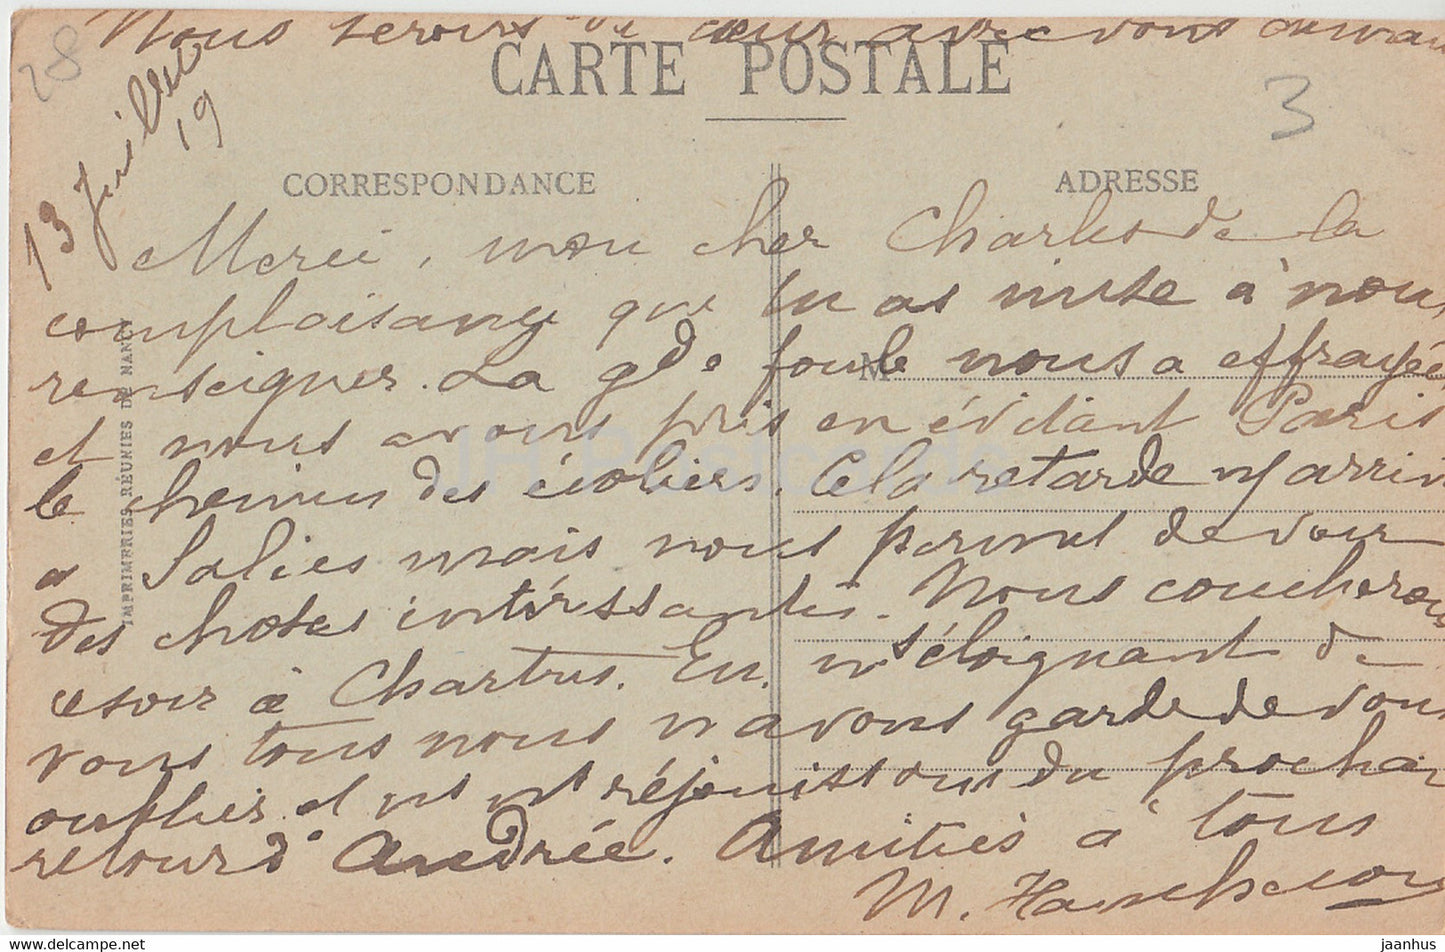 Nous serons de cœur avec vous
28
CARTE POSTALE
3
13 Juillet
19
CORRESPONDANCE
ADRESSE
Merci, mon cher Charles de la
complaisance que tu as mise à nous
renseigner. La gde foule nous a effrayée
M
et nous avons pris en évitant Paris
le chemin des écoliers. Cela retarde n/ arriv
a Salies mais nous permet de voir
des choses intéressantes. Nous coucherons
ce soir à Chartres. En ns éloignant de
vous tous nous n'avons garde de vous
oublier et ns ns réjouissons du prochain
retour d'Andrée. Amitiés à tous
M.
IMPRIMERIES RÉUNIES DE NANCY
JH Postcards
hip-postcard.ee